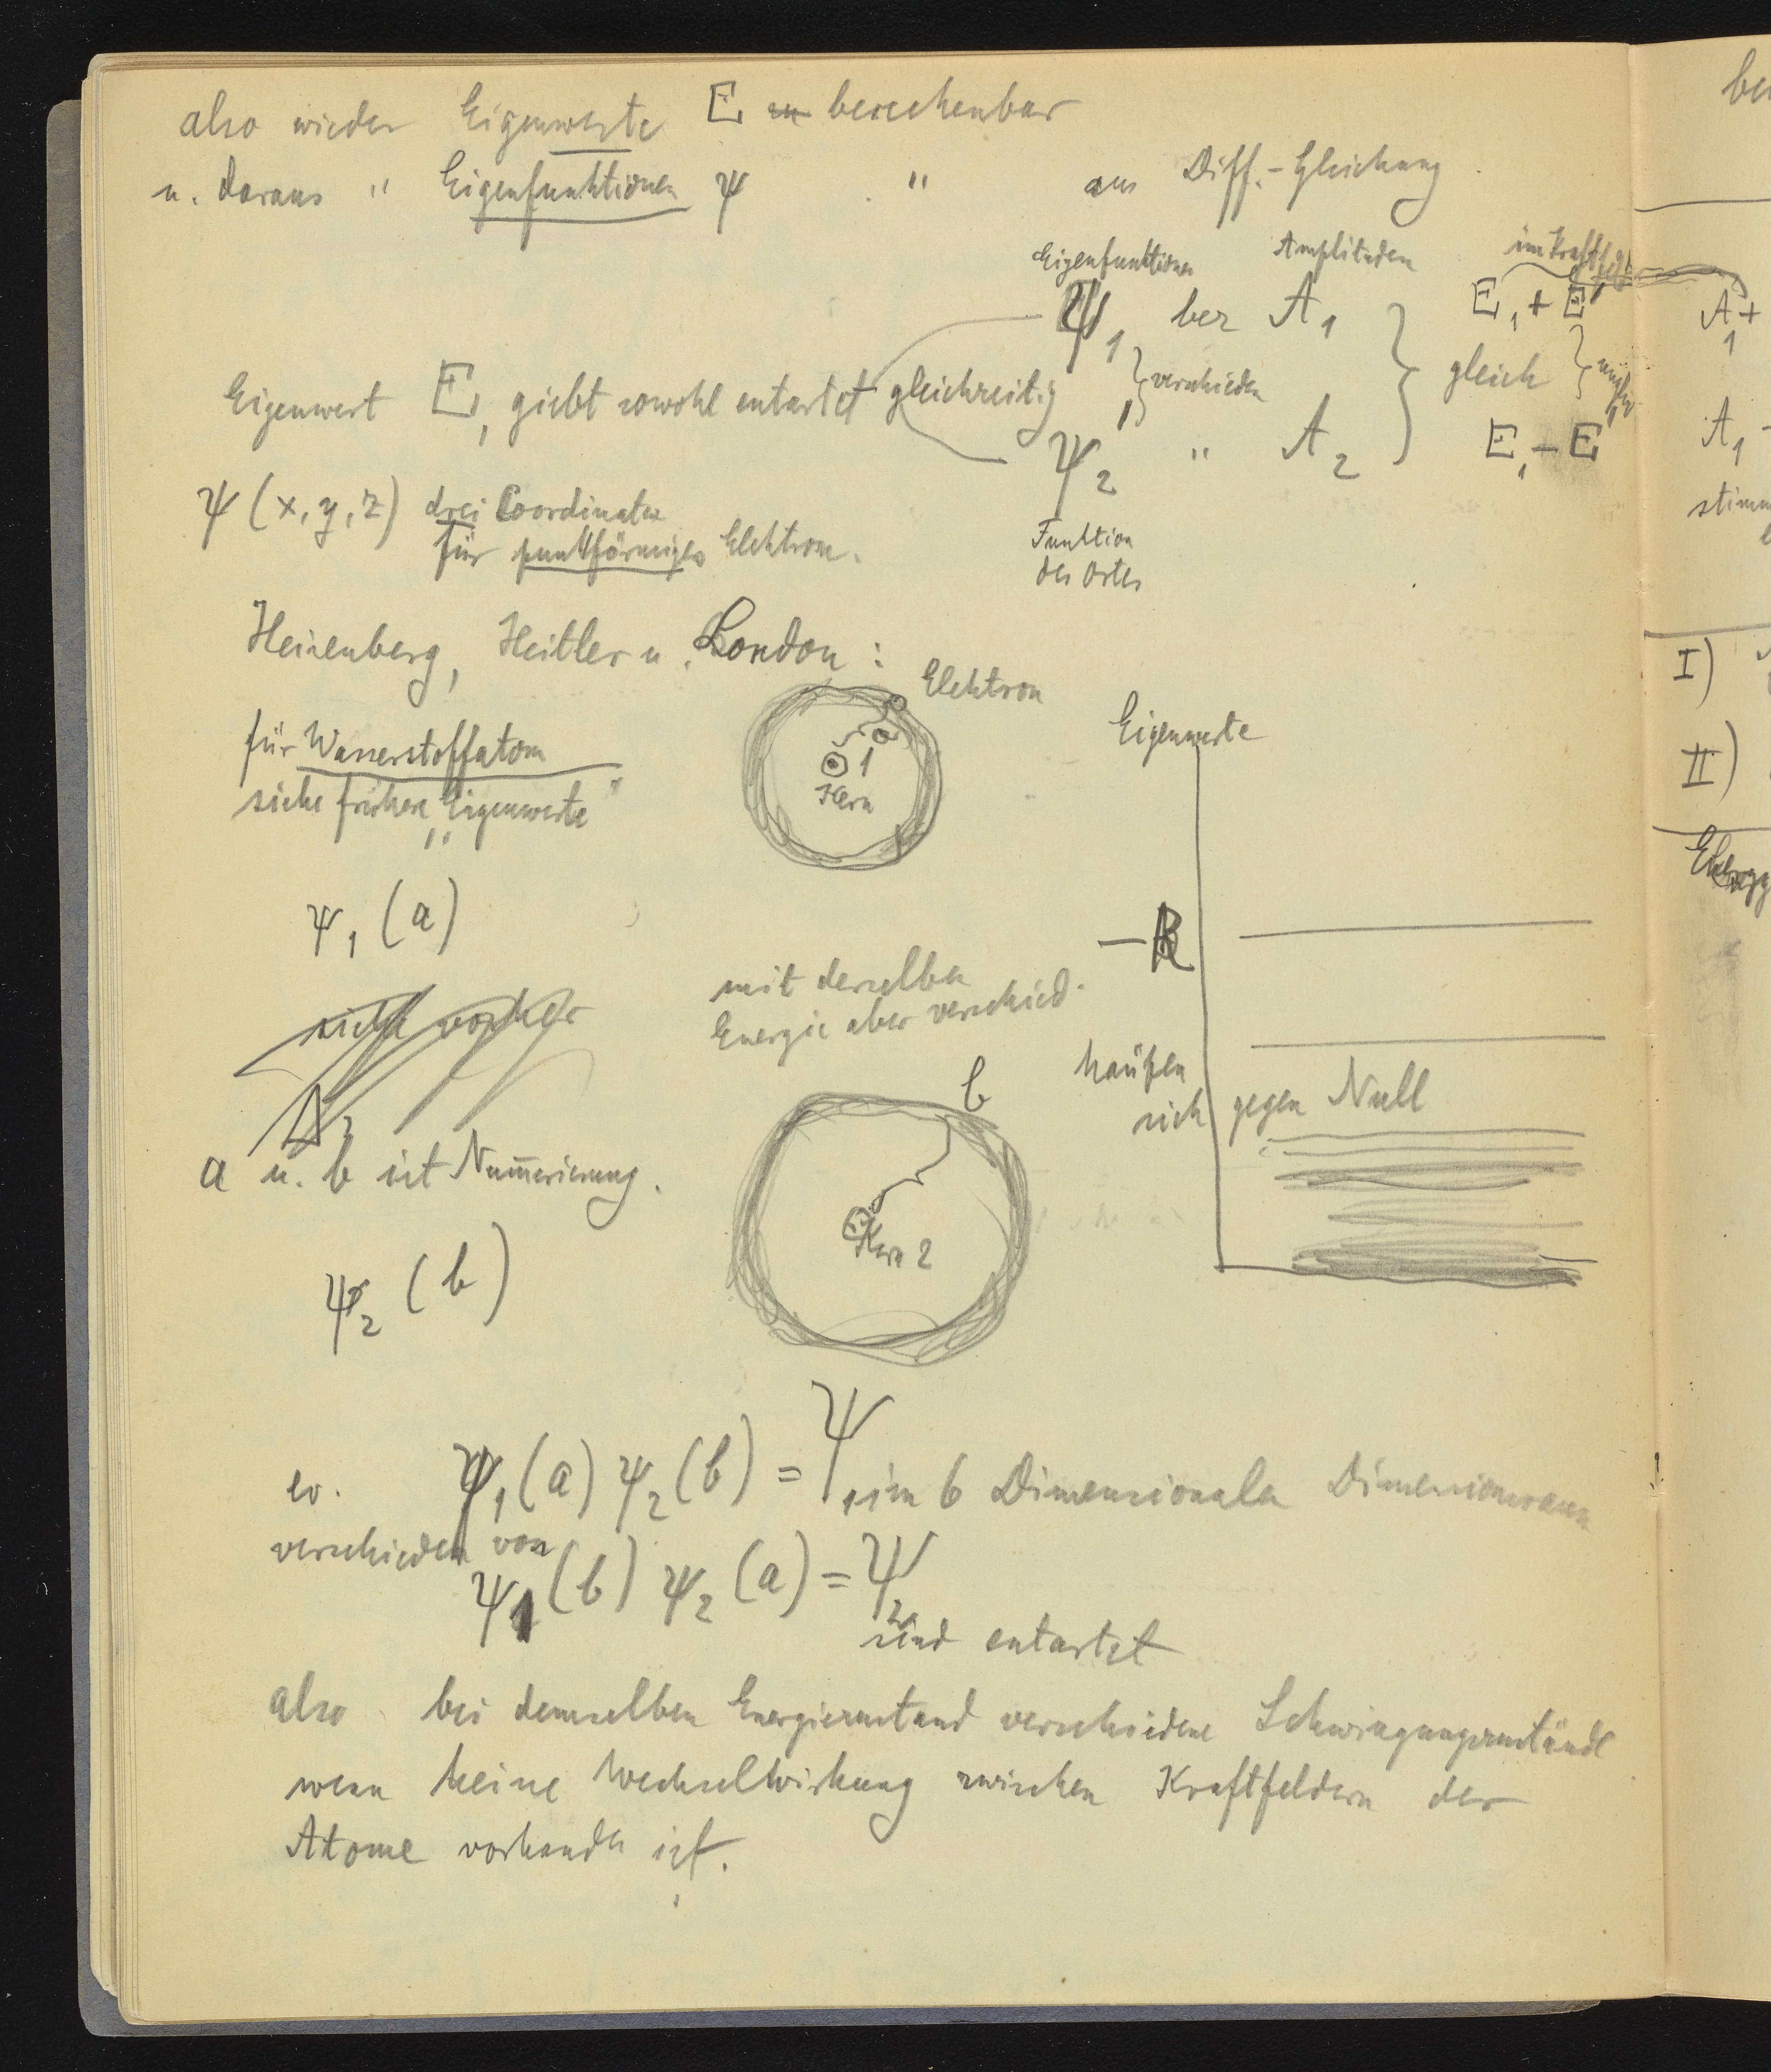 also wieder Eigenwerte E berechenbar
u. daraus " Eigenfunktionen ψ " aus Diff.-Gleichung
Eigenfunktionen Amplituden im Kraftfeld
Ψ₁ ber A₁ E₁ + E'
Eigenwert E₁ giebt sowohl entartet gleichzeitig verschieden gleich
ψ₂ " A₂ E₁ - E'
Funktion
des Ortes
ψ (x, y, z) drei Coordinaten
für punktförmiges Elektron.
Heisenberg, Heitler u. London:
Elektron
a
1
Kern
für Wasserstoffatom
siehe frühere „Eigenwerte"
Eigenwerte
ψ₁ (a)
- R
mit derselben
Energie aber verschied.
siehe vorher
häufen
sich gegen Null
b
Kern 2
a u. b ist Num̅erierung.
ψ₂ (b)
ev. ψ₁(a) ψ₂(b) = Ψ₁ im 6 Dimensionalen Dimensionsraum
verschieden von
ψ₁(b) ψ₂(a) = Ψ₂
sind entartet
also bei demselben Energiezustand verschiedene Schwingungszustände
wenn keine Wechselwirkung zwischen Kraftfeldern der
Atome vorhanden ist.
A₁ +
A₁ -
I)
II)